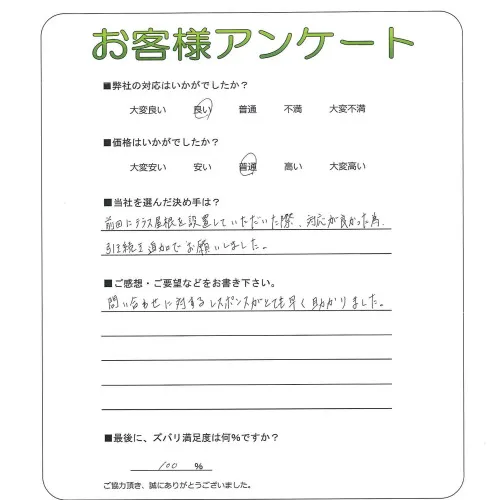 お客様アンケート
■弊社の対応はいかがでしたか？
大変良い 良い 普通 不満 大変不満
■価格はいかがでしたか？
大変安い 安い 普通 高い 大変高い
■当社を選んだ決め手は？
前回にテラス屋根を設置していただいた際、対応が良かった為、
引き続き追加でお願いしました。
■ご感想・ご要望などをお書き下さい。
問い合わせに対するレスポンスがとても早く助かりました。
■最後に、ズバリ満足度は何%ですか？
100 %
ご協力頂き、誠にありがとうございました。